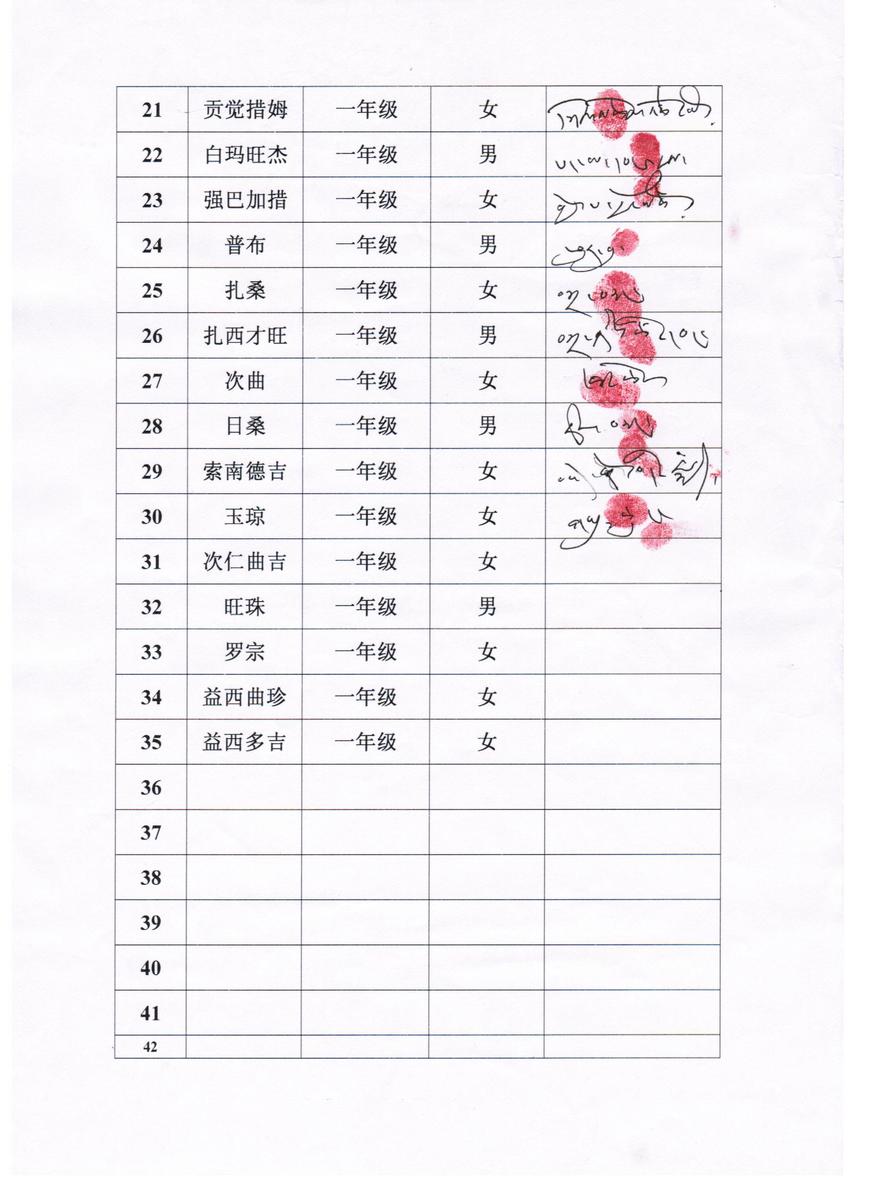 21 贡觉措姆 一年级 女
22 白玛旺杰 一年级 男
23 强巴加措 一年级 女
24 普布 一年级 男
25 扎桑 一年级 女
26 扎西才旺 一年级 男
27 次曲 一年级 女
28 日桑 一年级 男
29 索南德吉 一年级 女
30 玉琼 一年级 女
31 次仁曲吉 一年级 女
32 旺珠 一年级 男
33 罗宗 一年级 女
34 益西曲珍 一年级 女
35 益西多吉 一年级 女
36
37
38
39
40
41
42